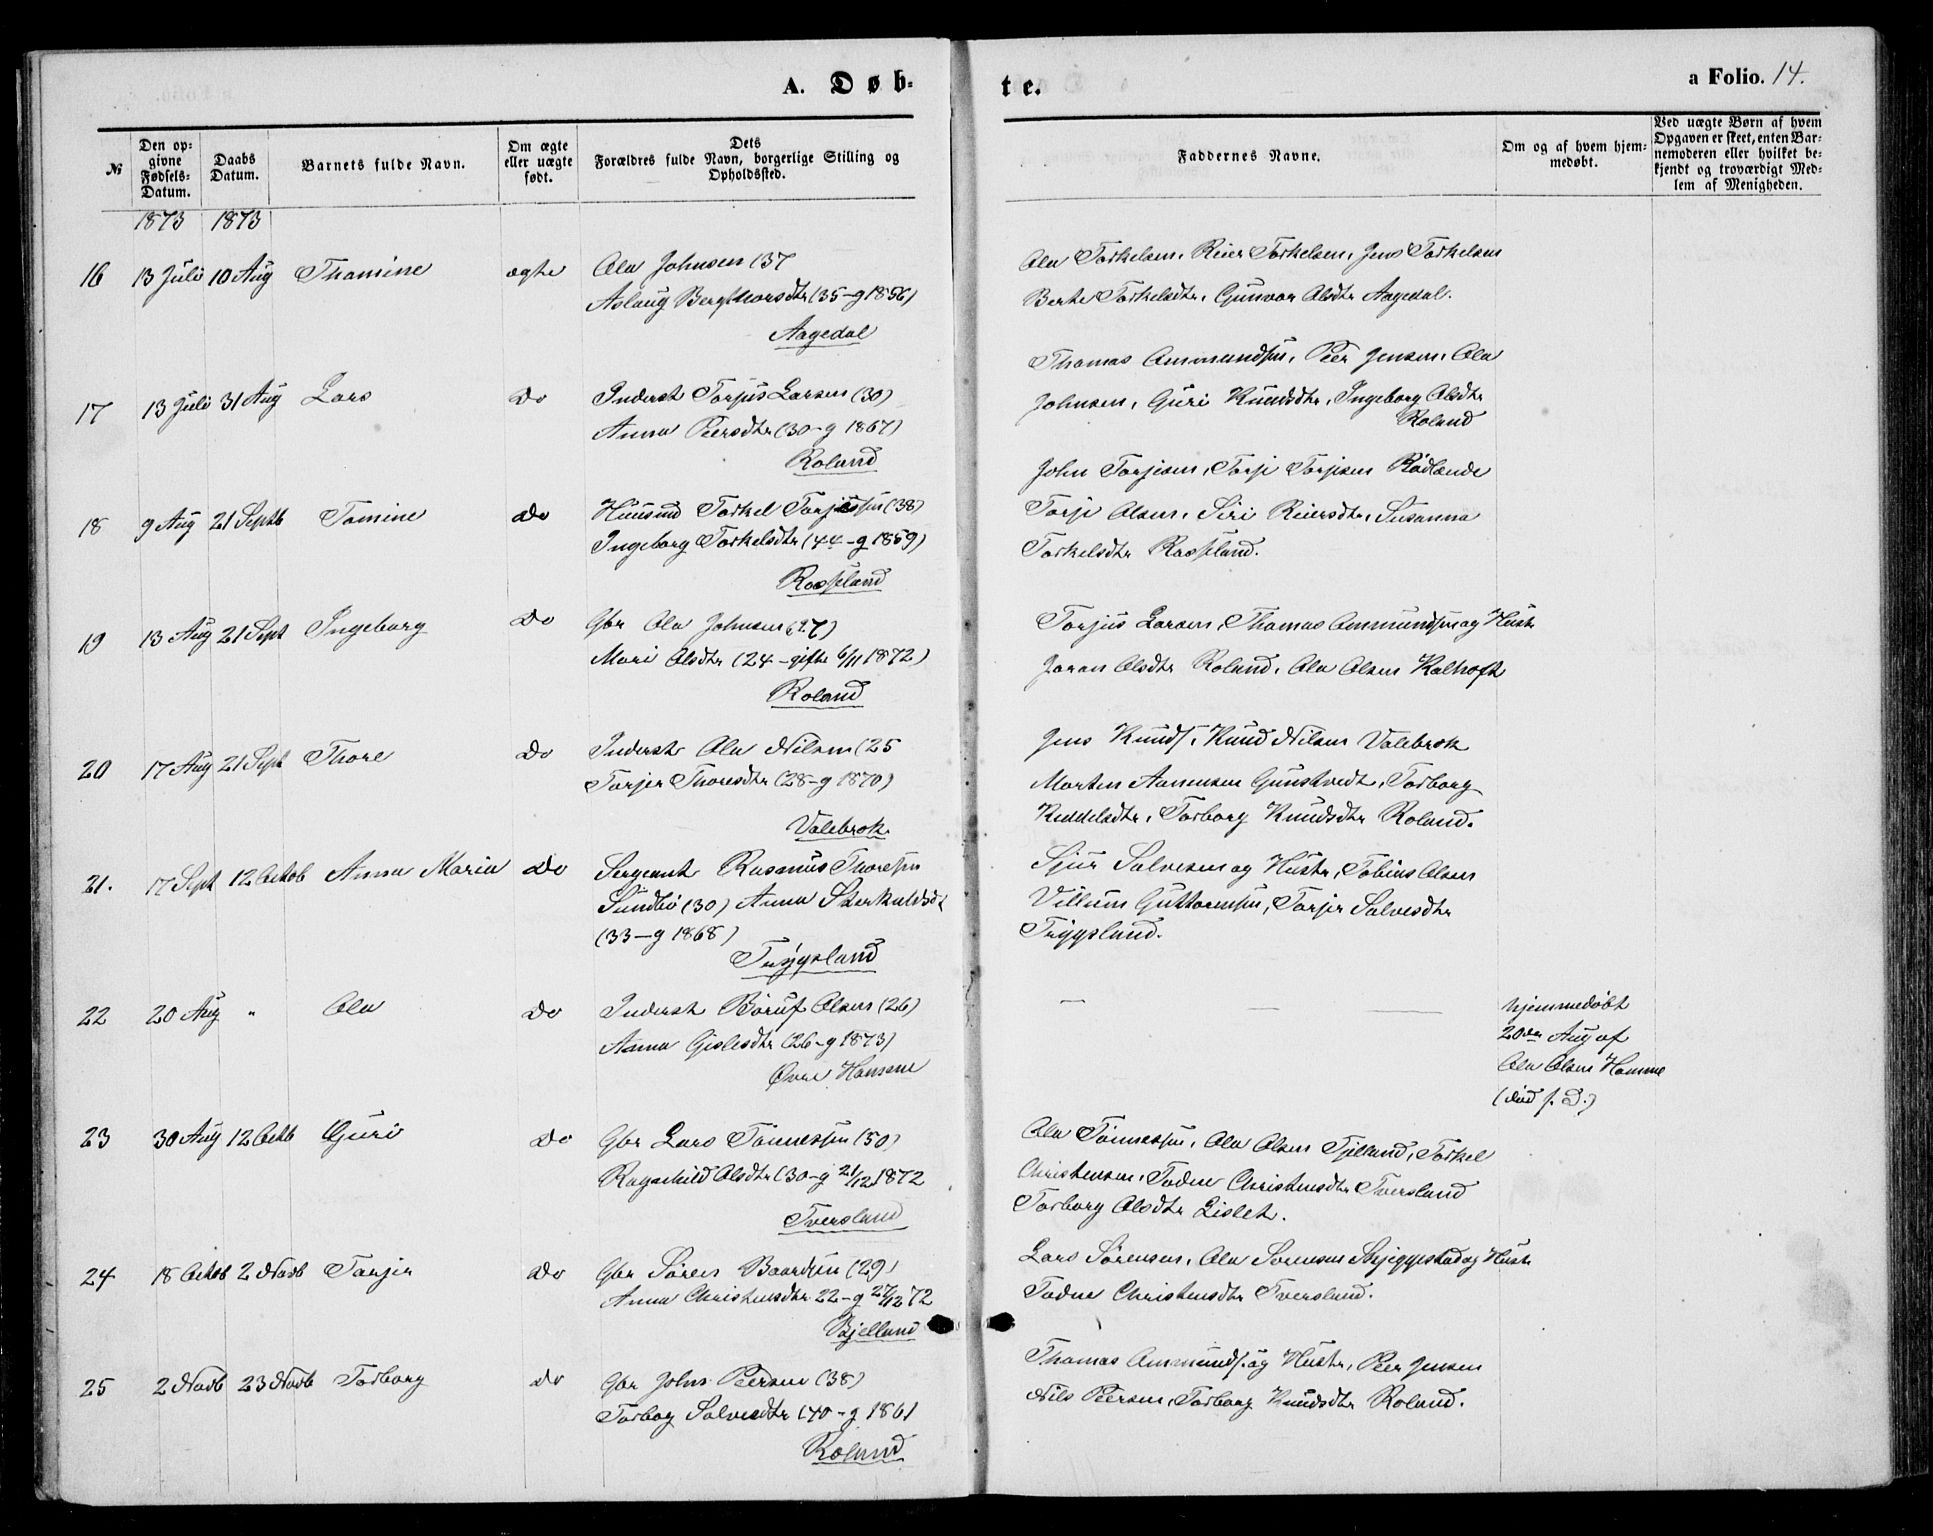 A. Døb-
te.
a Folio. 14.
№
Den op-
givne
Fødsels-
Datum.
Daabs
Datum.
Barnets fulde Navn.
Om ægte
eller uægte
født.
Dets
Forældres fulde Navn, borgerlige Stilling og
Opholdssted.
Faddernes Navne.
Om og af hvem hjem-
medøbt.
Ved uægte Børn af hvem
Opgaven er skeet, enten Bar-
nemoderen eller hvilket be-
kjendt og troværdigt Med-
lem af Menigheden.
1873 1873
16 13 Juli 10 Aug Thomine ægte Ola Johnsen (37
Aslaug Bergthorsdtr (35-g 1856)
Aagedal
Ola Torkelsen, Reier Torkelsen, Jens Torkelsen
Berte Torkelsdtr, Gunvor Olsdtr Aagedal.
17 13 Juli 31 Aug Lars Do Inderst Torjus Larsen (30)
Anna Peersdtr (30-g 1867)
Roland
Thomas Ommundsen, Peer Jensen, Ola
Johnsen, Guri Knudsdtr, Ingeborg Olsdtr
Roland
18 9 Aug 21 Septb Tomine Do Huusmd Torkel Torjussen (38)
Ingeborg Torkelsdtr (44-g 1859)
Rosseland
John Torjisen, Torje Torjisen Rødlende
Torje Olsen, Siri Reiersdtr, Susanna
Torkelsdtr Rosseland.
19 13 Aug 21 Sept Ingeborg Do Gbr Ola Johnsen (27)
Mari Olsdtr (24-gifte 6/11 1872)
Roland
Torjus Larsen, Thomas Ommundsen og Hustr
Joran Olsdtr Roland, Ola Olsen Kalhoft
20 17 Aug 21 Sept Thore Do Inderst Ola Nilsen (25
Torjer Thoresdtr (28-g 1870)
Valebrok
Jens Knuds, Knud Nilsen Valebrok
Morten Aanensen Gunstvedt, Torborg
Keddelsdtr, Torborg Knudsdtr Roland.
21. 17 Sept 12 Octob Anna Maria Do Sergeant Rasmus Thoresen
Sundbø (30) Anna Sterkuldsdt
(33-g 1868)
Trygsland
Sjur Salvesen og Hustr, Tobias Olsen
Villum Guttormsen, Torjer Salvesdtr
Trygsland.
22 20 Aug " Ola Do Inderst Børuf Olsen (26)
Anna Gislesdtr (26-g 1873)
Øvre Homme
hjemmedøbt
20de Aug af
Ola Olsen Homme
(død f. D.)
23 30 Aug 12 Octb Guri Do Gbr Lars Tønnessen (50)
Ragnhild Olsdtr (30-g 21/12 1872
Tversland
Ola Tønnessen, Ola Olsen Tjelland, Torkel
Christensen, Todne Christensdtr Tversland
Torborg Olsdtr Lislet.
24 18 Octob 2 Novb Torjer Do Gbr Søren Baardsen (29)
Anna Christensdtr 22-g 27/12 72
Bjelland
Lars Sørensen, Ola Sørensen Skjeggestad og Hustr
Todne Christensdtr Tversland.
25 2 Novb 23 Novb Torborg Do Gbr John Peersen (38)
Torbog Salvesdtr (40-g 1861
Roland
Thomas Ommunds. og Hustr, Peer Jensen
Nils Peersen, Torborg Knudsdtr Roland.